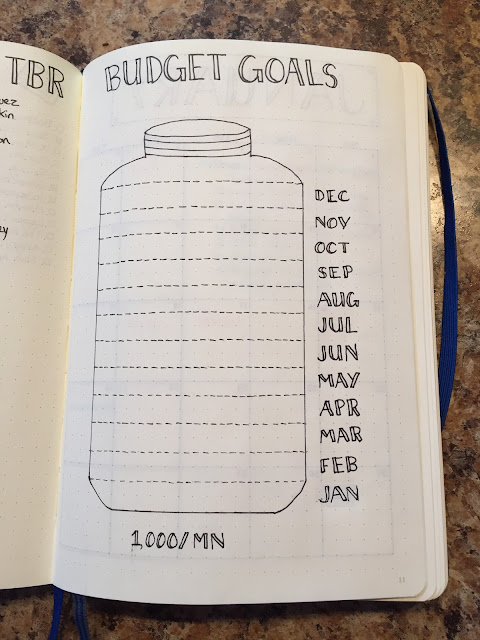 TBR
BUDGET GOALS
DEC
NOV
OCT
SEP
AUG
JUL
JUN
MAY
APR
MAR
FEB
JAN
1,000/MN